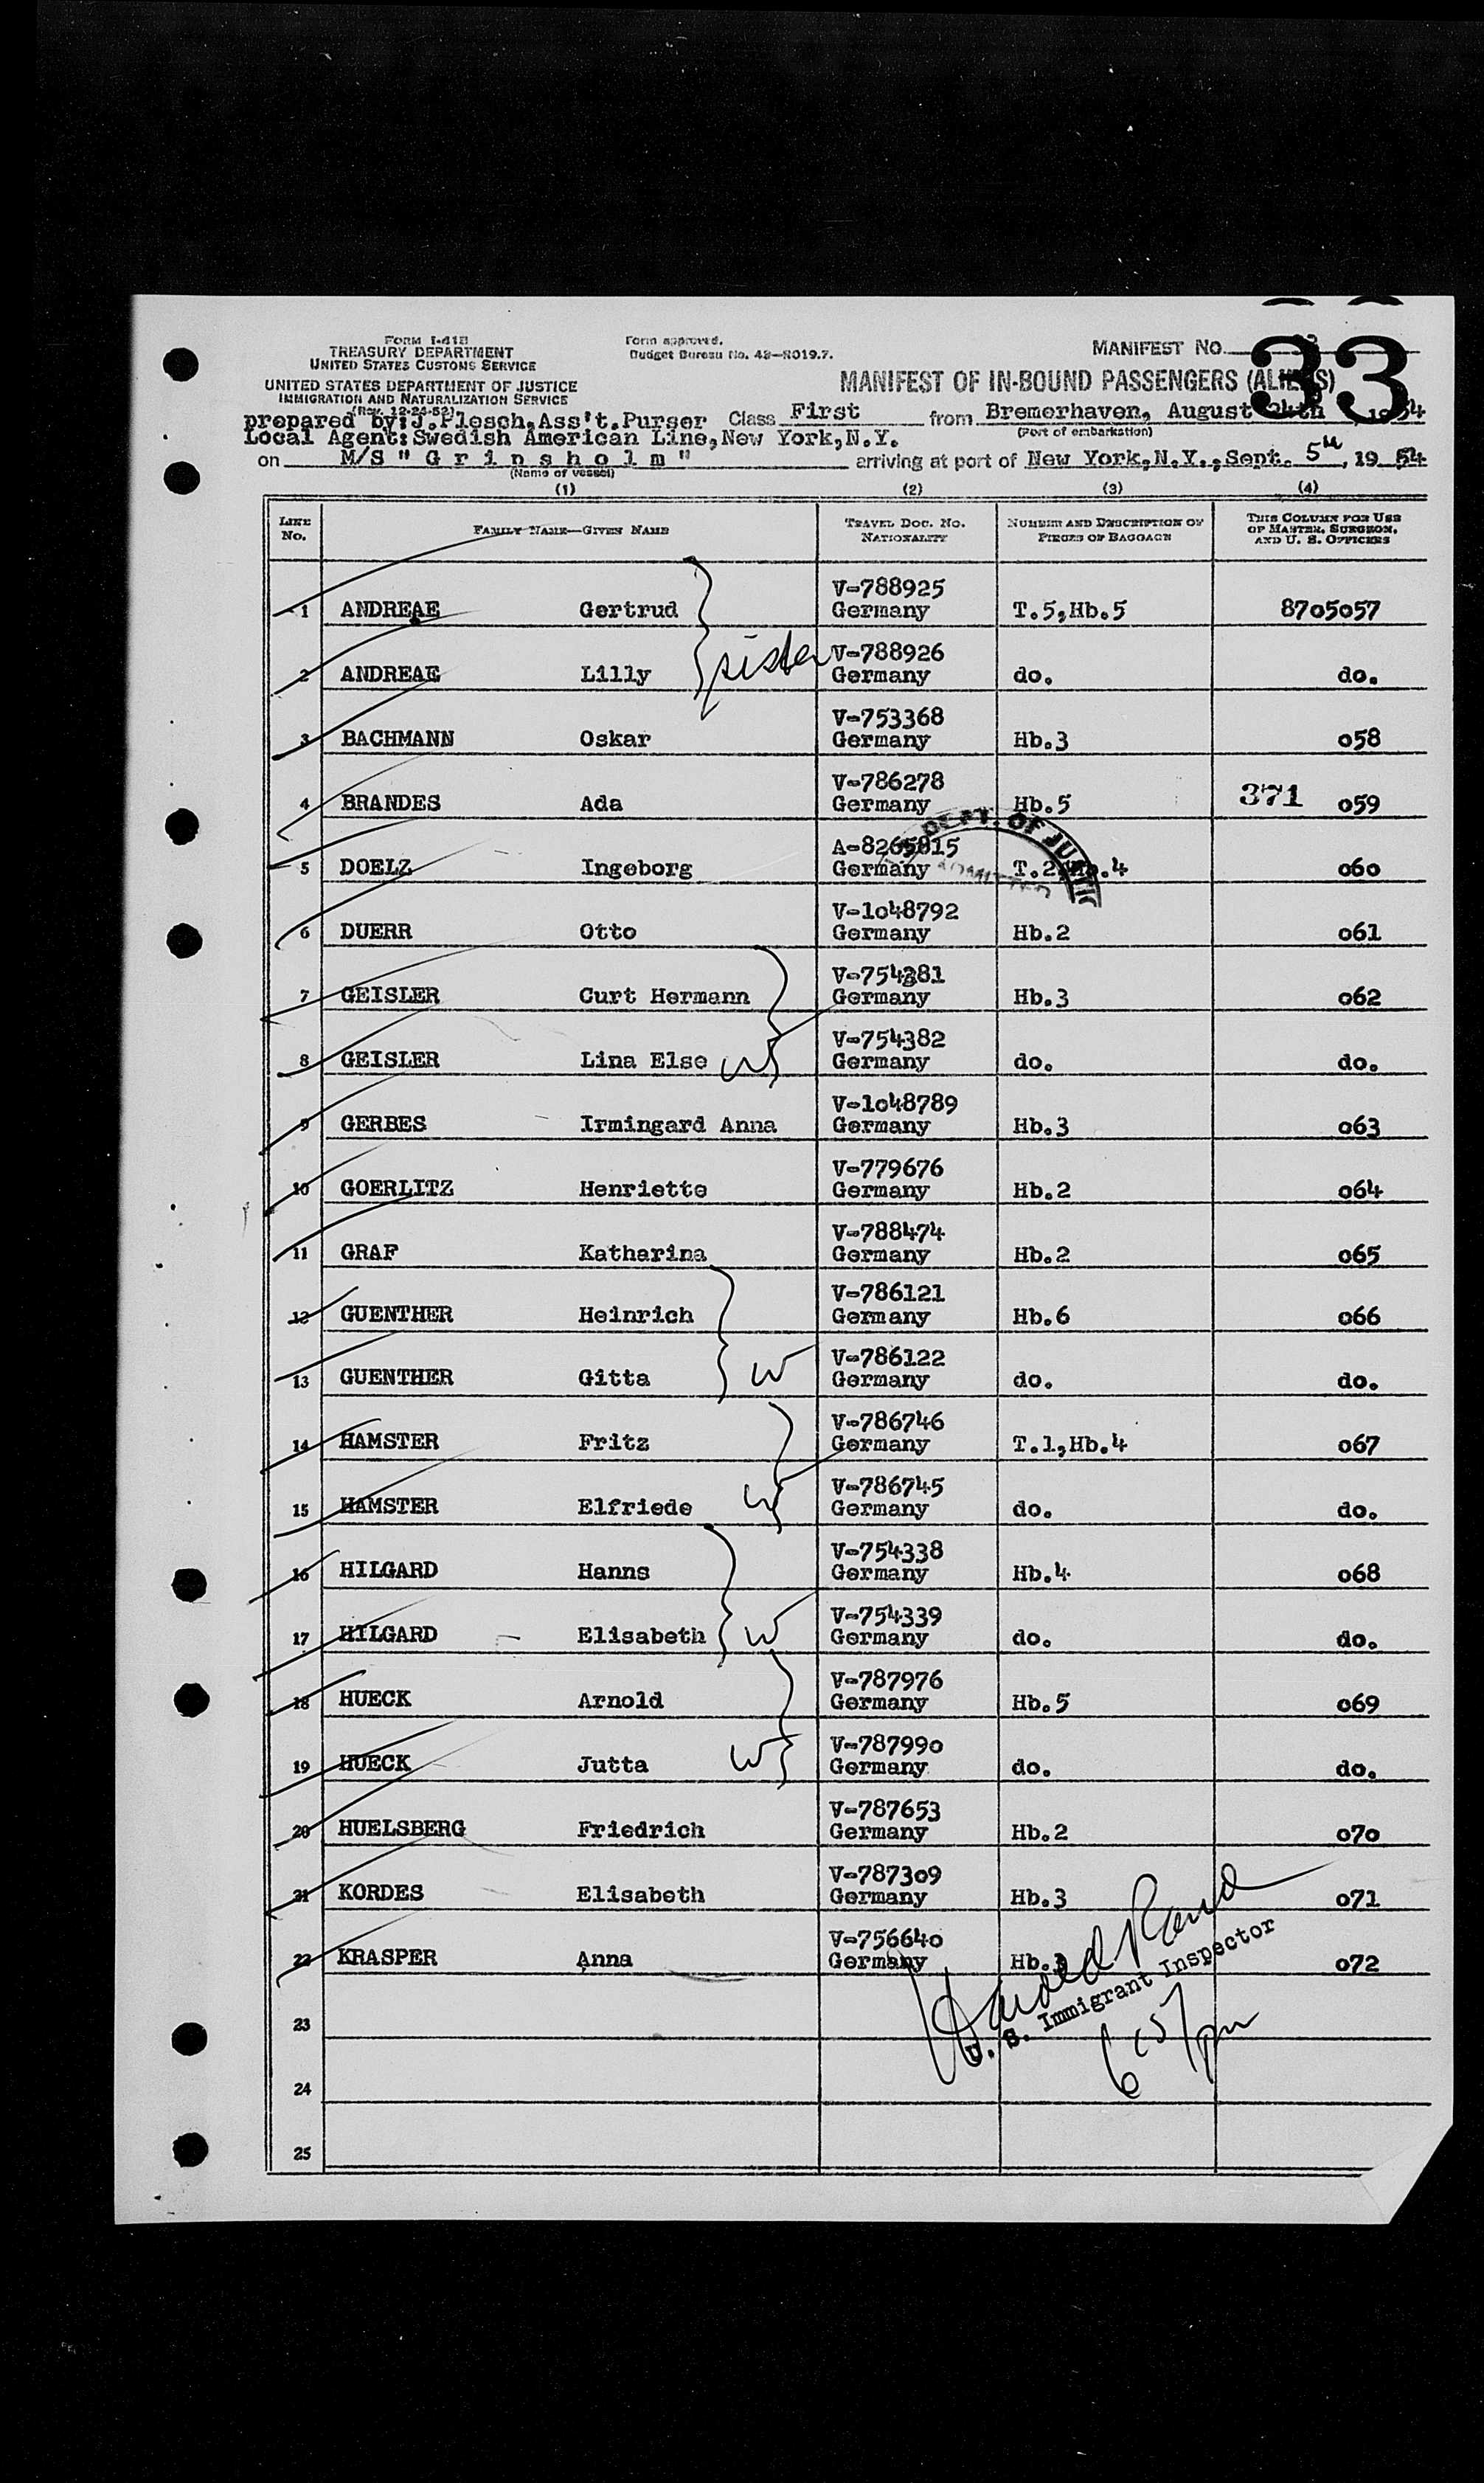 33
FORM I-418
TREASURY DEPARTMENT
UNITED STATES CUSTOMS SERVICE
UNITED STATES DEPARTMENT OF JUSTICE
IMMIGRATION AND NATURALIZATION SERVICE
(Rev. 12-24-52)
Form approved.
Budget Bureau No. 43-R019.7.
MANIFEST NO.
MANIFEST OF IN-BOUND PASSENGERS (ALIENS)
prepared by: J.Plesch, Ass't. Purser Class First from Bremerhaven, August 24th 1954
(Port of embarkation)
Local Agent: Swedish American Line, New York, N.Y.
on M/S " G r i n s h o l m " arriving at port of New York, N.Y., Sept. 5th, 19 54
(Name of vessel)
(1) (2) (3) (4)
LINE No. FAMILY NAME—GIVEN NAME TRAVEL DOC. NO. NATIONALITY NUMBER AND DESCRIPTION OF PIECES OF BAGGAGE THIS COLUMN FOR USE OF MASTER, SURGEON, AND U. S. OFFICERS
V-788925
1 ANDREAE Gertrud Germany T.5,Hb.5 8705057
sister V-788926
2 ANDREAE Lilly Germany do. do.
V-753368
3 BACHMANN Oskar Germany Hb.3 058
V-786278
4 BRANDES Ada Germany Hb.5 371 059
DEPT. OF JUSTIC
ADMITTED
A-8265815
5 DOELZ Ingeborg Germany T.2,Hb.4 060
V-1048792
6 DUERR Otto Germany Hb.2 061
V-754381
7 GEISLER Curt Hermann Germany Hb.3 062
V-754382
8 GEISLER Lina Else W Germany do. do.
V-1048789
9 GERBES Irmingard Anna Germany Hb.3 063
V-779676
10 GOERLITZ Henriette Germany Hb.2 064
V-788474
11 GRAF Katharina Germany Hb.2 065
V-786121
12 GUENTHER Heinrich Germany Hb.6 066
V-786122
13 GUENTHER Gitta W Germany do. do.
V-786746
14 HAMSTER Fritz Germany T.1,Hb.4 067
V-786745
15 HAMSTER Elfriede W Germany do. do.
V-754338
16 HILGARD Hanns Germany Hb.4 068
V-754339
17 HILGARD Elisabeth W Germany do. do.
V-787976
18 HUECK Arnold Germany Hb.5 069
V-787990
19 HUECK Jutta W Germany do. do.
V-787653
20 HUELSBERG Friedrich Germany Hb.2 070
V-787309
21 KORDES Elisabeth Germany Hb.3 071
V-756640
22 KRASPER Anna Germany Hb.3 072
Harold
U. S. Immigrant Inspector
23
24
25